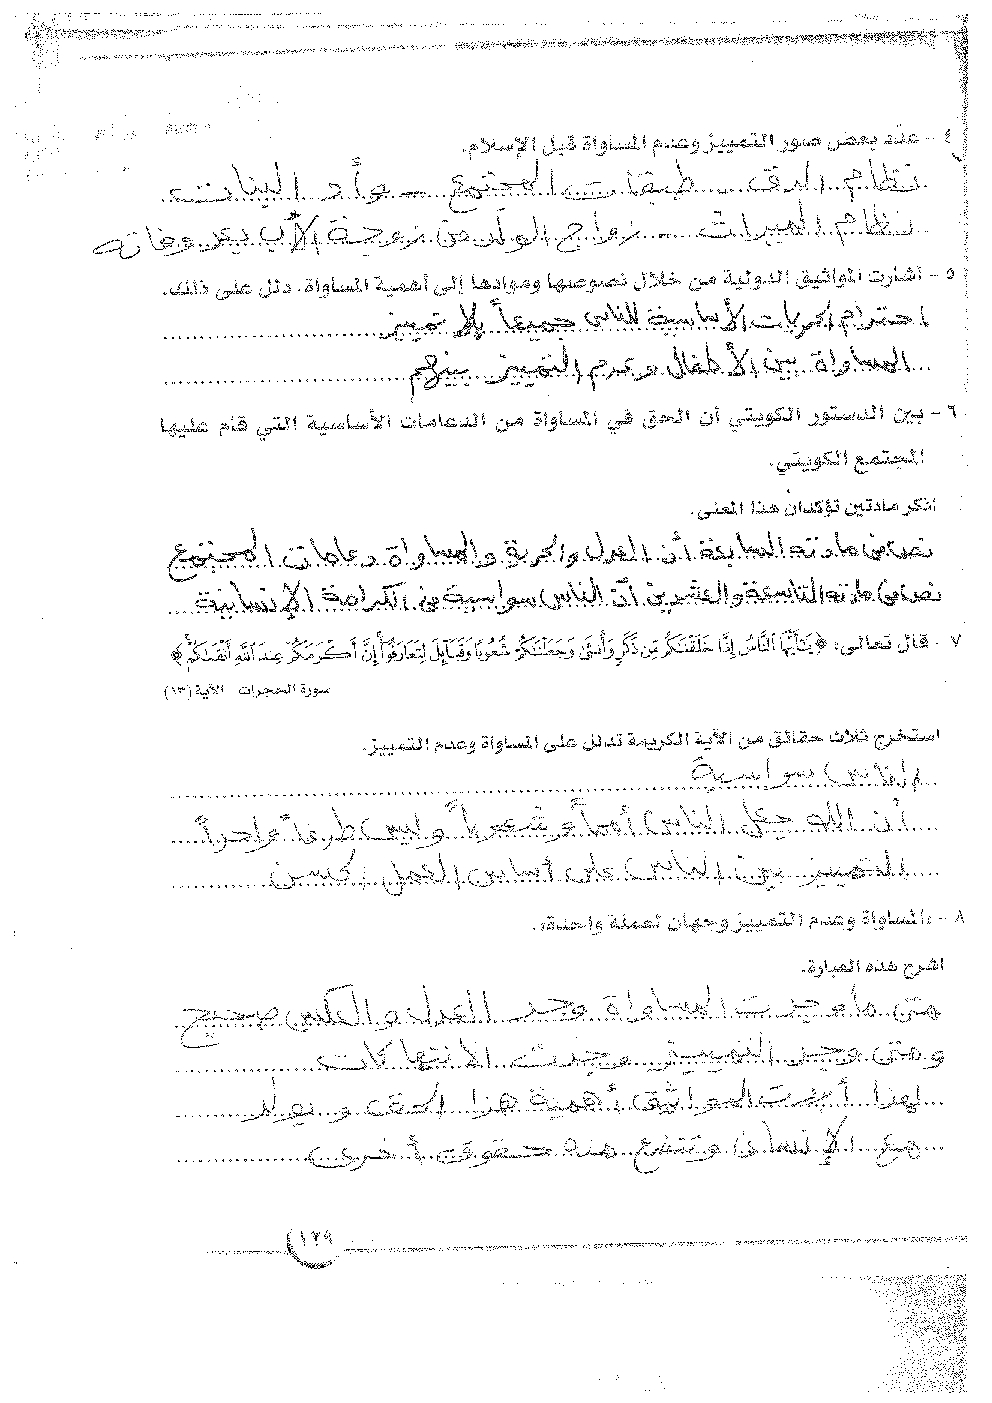 ٤ - عدّد بعض صور التمييز وعدم المساواة قبل الإسلام.
نظام الرق - طبقات المجتمع - وأد البنات
نظام الميراث - زواج الولد من زوجة الأب بعد وفاته
٥ - أشارت المواثيق الدولية من خلال نصوصها وموادها إلى أهمية المساواة. دلل على ذلك.
احترام الحريات الأساسية للناس جميعاً بلا تمييز
المساواة بين الأطفال وعدم التمييز بينهم
٦ - بين الدستور الكويتي أن الحق في المساواة من الدعامات الأساسية التي قام عليها
المجتمع الكويتي.
اذكر مادتين تؤكدان هذا المعنى.
نص في مادته السابعة أن العدل والحرية والمساواة دعامات المجتمع
نص في مادته التاسعة والعشرين أن الناس سواسية في الكرامة الإنسانية
٧ - قال تعالى: ﴿يَٰٓأَيُّهَا ٱلنَّاسُ إِنَّا خَلَقْنَٰكُم مِّن ذَكَرٍ وَأُنثَىٰ وَجَعَلْنَٰكُمْ شُعُوبًا وَقَبَآئِلَ لِتَعَارَفُوٓا۟ إِنَّ أَكْرَمَكُمْ عِندَ ٱللَّهِ أَتْقَىٰكُمْ﴾
سورة الحجرات الآية (١٣)
استخرج ثلاث حقائق من الآية الكريمة تدلل على المساواة وعدم التمييز.
الناس سواسية
أن الله جعل الناس أمماً وشعوباً وليس طرفاً واحداً
التمييز بين الناس على أساس العمل الحسن
٨ - «المساواة وعدم التمييز وجهان لعملة واحدة».
اشرح هذه العبارة.
متى ما وجدت المساواة وجد العدل والعكس صحيح
ومتى وجد التمييز وجدت الانتهاكات
لهذا أبرزت المواثيق أهمية هذا الحق ويولد
مع الإنسان وتتفرع منه حقوق أخرى
١٢٩